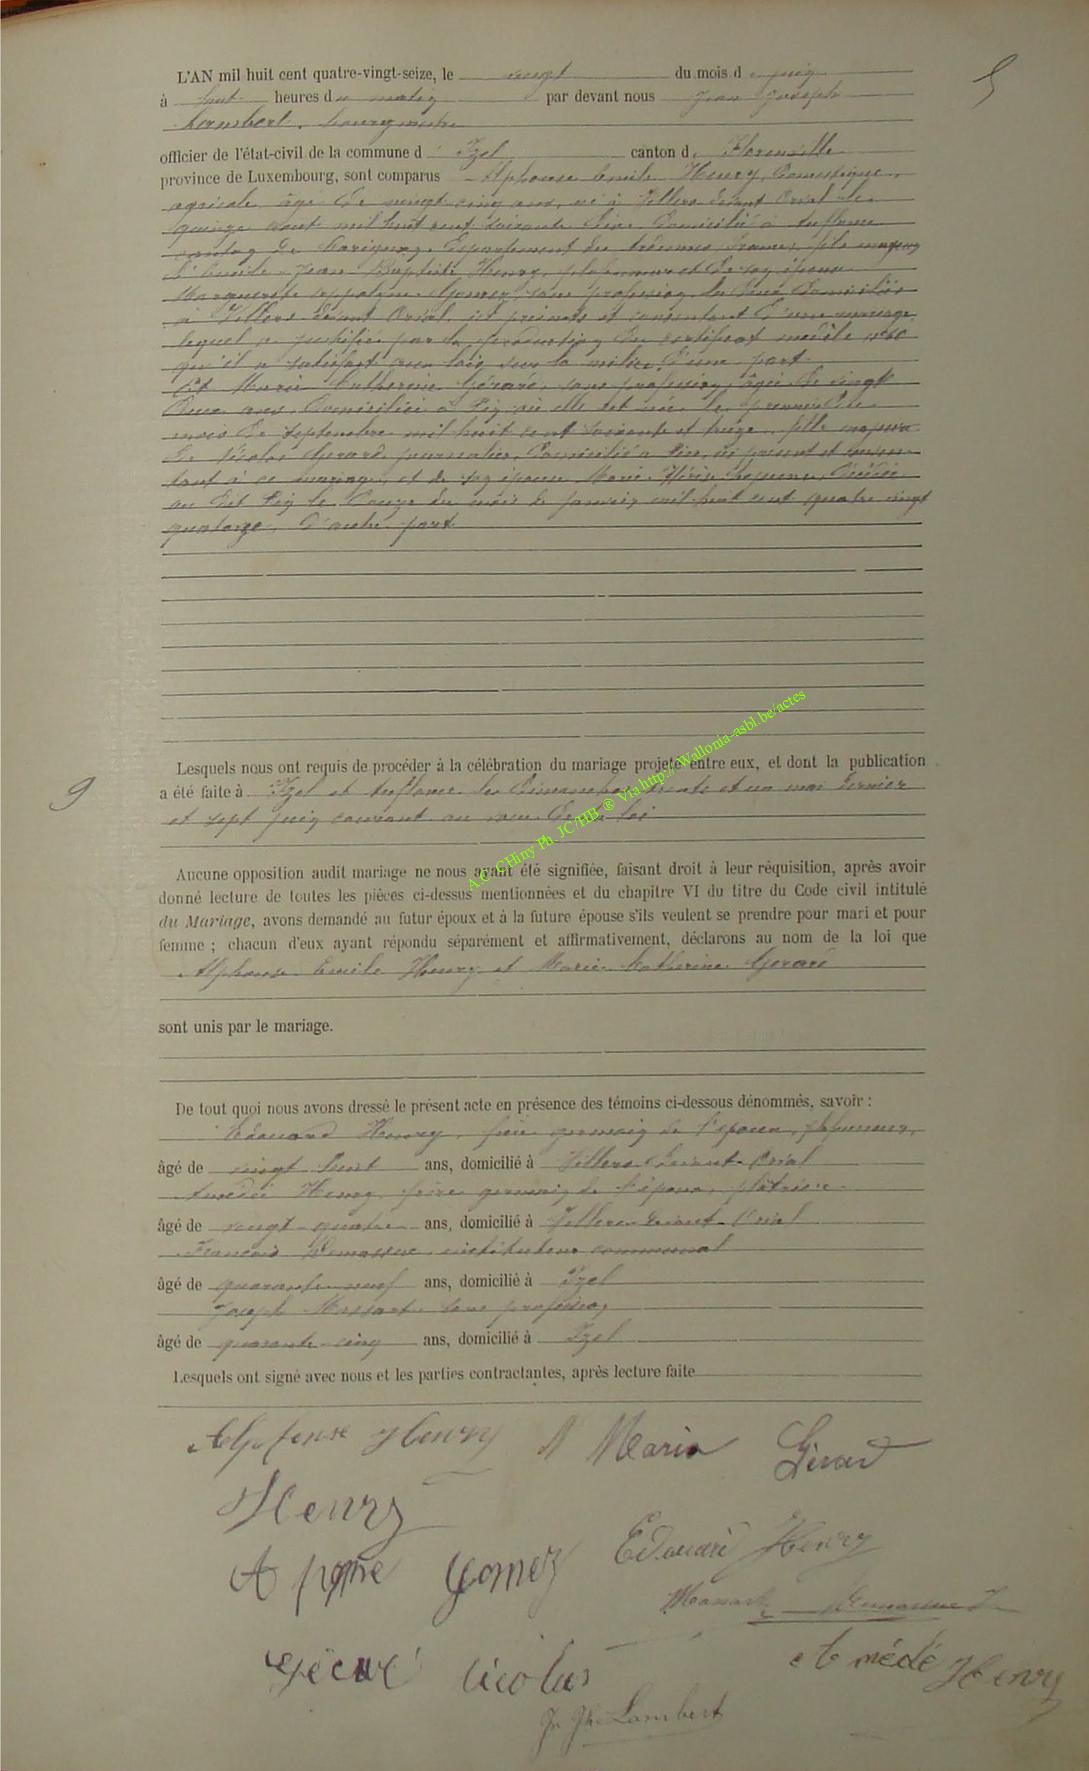 5
L'AN mil huit cent quatre-vingt-seize, le vingt du mois de juin
à huit heures du matin par devant nous Jean Joseph
Lambert, bourgmestre
officier de l'état-civil de la commune d' Izel canton de Florenville
province de Luxembourg, sont comparus Alphonse Emile Henry, Domestique
agricole, âgé de vingt cinq ans, né à Villers devant Orval le
quinze août mil huit cent soixante dix, Domicilié à
canton de Carignan, Département des Ardennes, France, fils majeur
d'Emile Jean Baptiste Henry, et de son épouse
Marguerite Gomez, sans profession, les deux domiciliés
à Villers devant Orval, ici présents et consentant à mariage,
lequel a justifié par la production du certificat modèle
qu'il a satisfait aux lois sur la milice, d'une part.
Et Marie Catherine Gérard, sans profession, âgée de vingt
deux ans, Domiciliée à Pin où elle est née le premier du
mois de septembre mil huit cent soixante et treize, fille majeure
de Nicolas Gérard, journalier, Domicilié à Pin, ici présent et consen-
tant à ce mariage, et de son épouse Marie décédée
au dit Pin le douze du mois de janvier mil huit cent quatre vingt
quatorze, d'autre part
Lesquels nous ont requis de procéder à la célébration du mariage projeté entre eux, et dont la publication
9
a été faite à Izel et les Dimanches trente et un mai dernier
et sept juin courant au vœu de la loi
Aucune opposition audit mariage ne nous ayant été signifiée, faisant droit à leur réquisition, après avoir
donné lecture de toutes les pièces ci-dessus mentionnées et du chapitre VI du titre du Code civil intitulé
du Mariage, avons demandé au futur époux et à la future épouse s'ils veulent se prendre pour mari et pour
femme ; chacun d'eux ayant répondu séparément et affirmativement, déclarons au nom de la loi que
Alphonse Emile Henry et Marie Catherine Gerard
sont unis par le mariage.
De tout quoi nous avons dressé le présent acte en présence des témoins ci-dessous dénommés, savoir :
Edouard Henry, frère germain de l'époux,
âgé de vingt ans, domicilié à Villers devant Orval
Amédée Henry, frère germain de l'époux,
âgé de vingt quatre ans, domicilié à Villers devant Orval
François instituteur communal
âgé de quarante neuf ans, domicilié à Izel
Joseph Massart sans profession
âgé de quarante cinq ans, domicilié à Izel
Lesquels ont signé avec nous et les parties contractantes, après lecture faite
Alphonse Henry M Maria Gérard
Henry
Edouard Henry
Gomez
Massart
Nicolas
Amédé Henry
Jn Jh Lambert
A.C. CHiny Ph. JC/HB ® Via http://Wallonia-asbl.be/actes